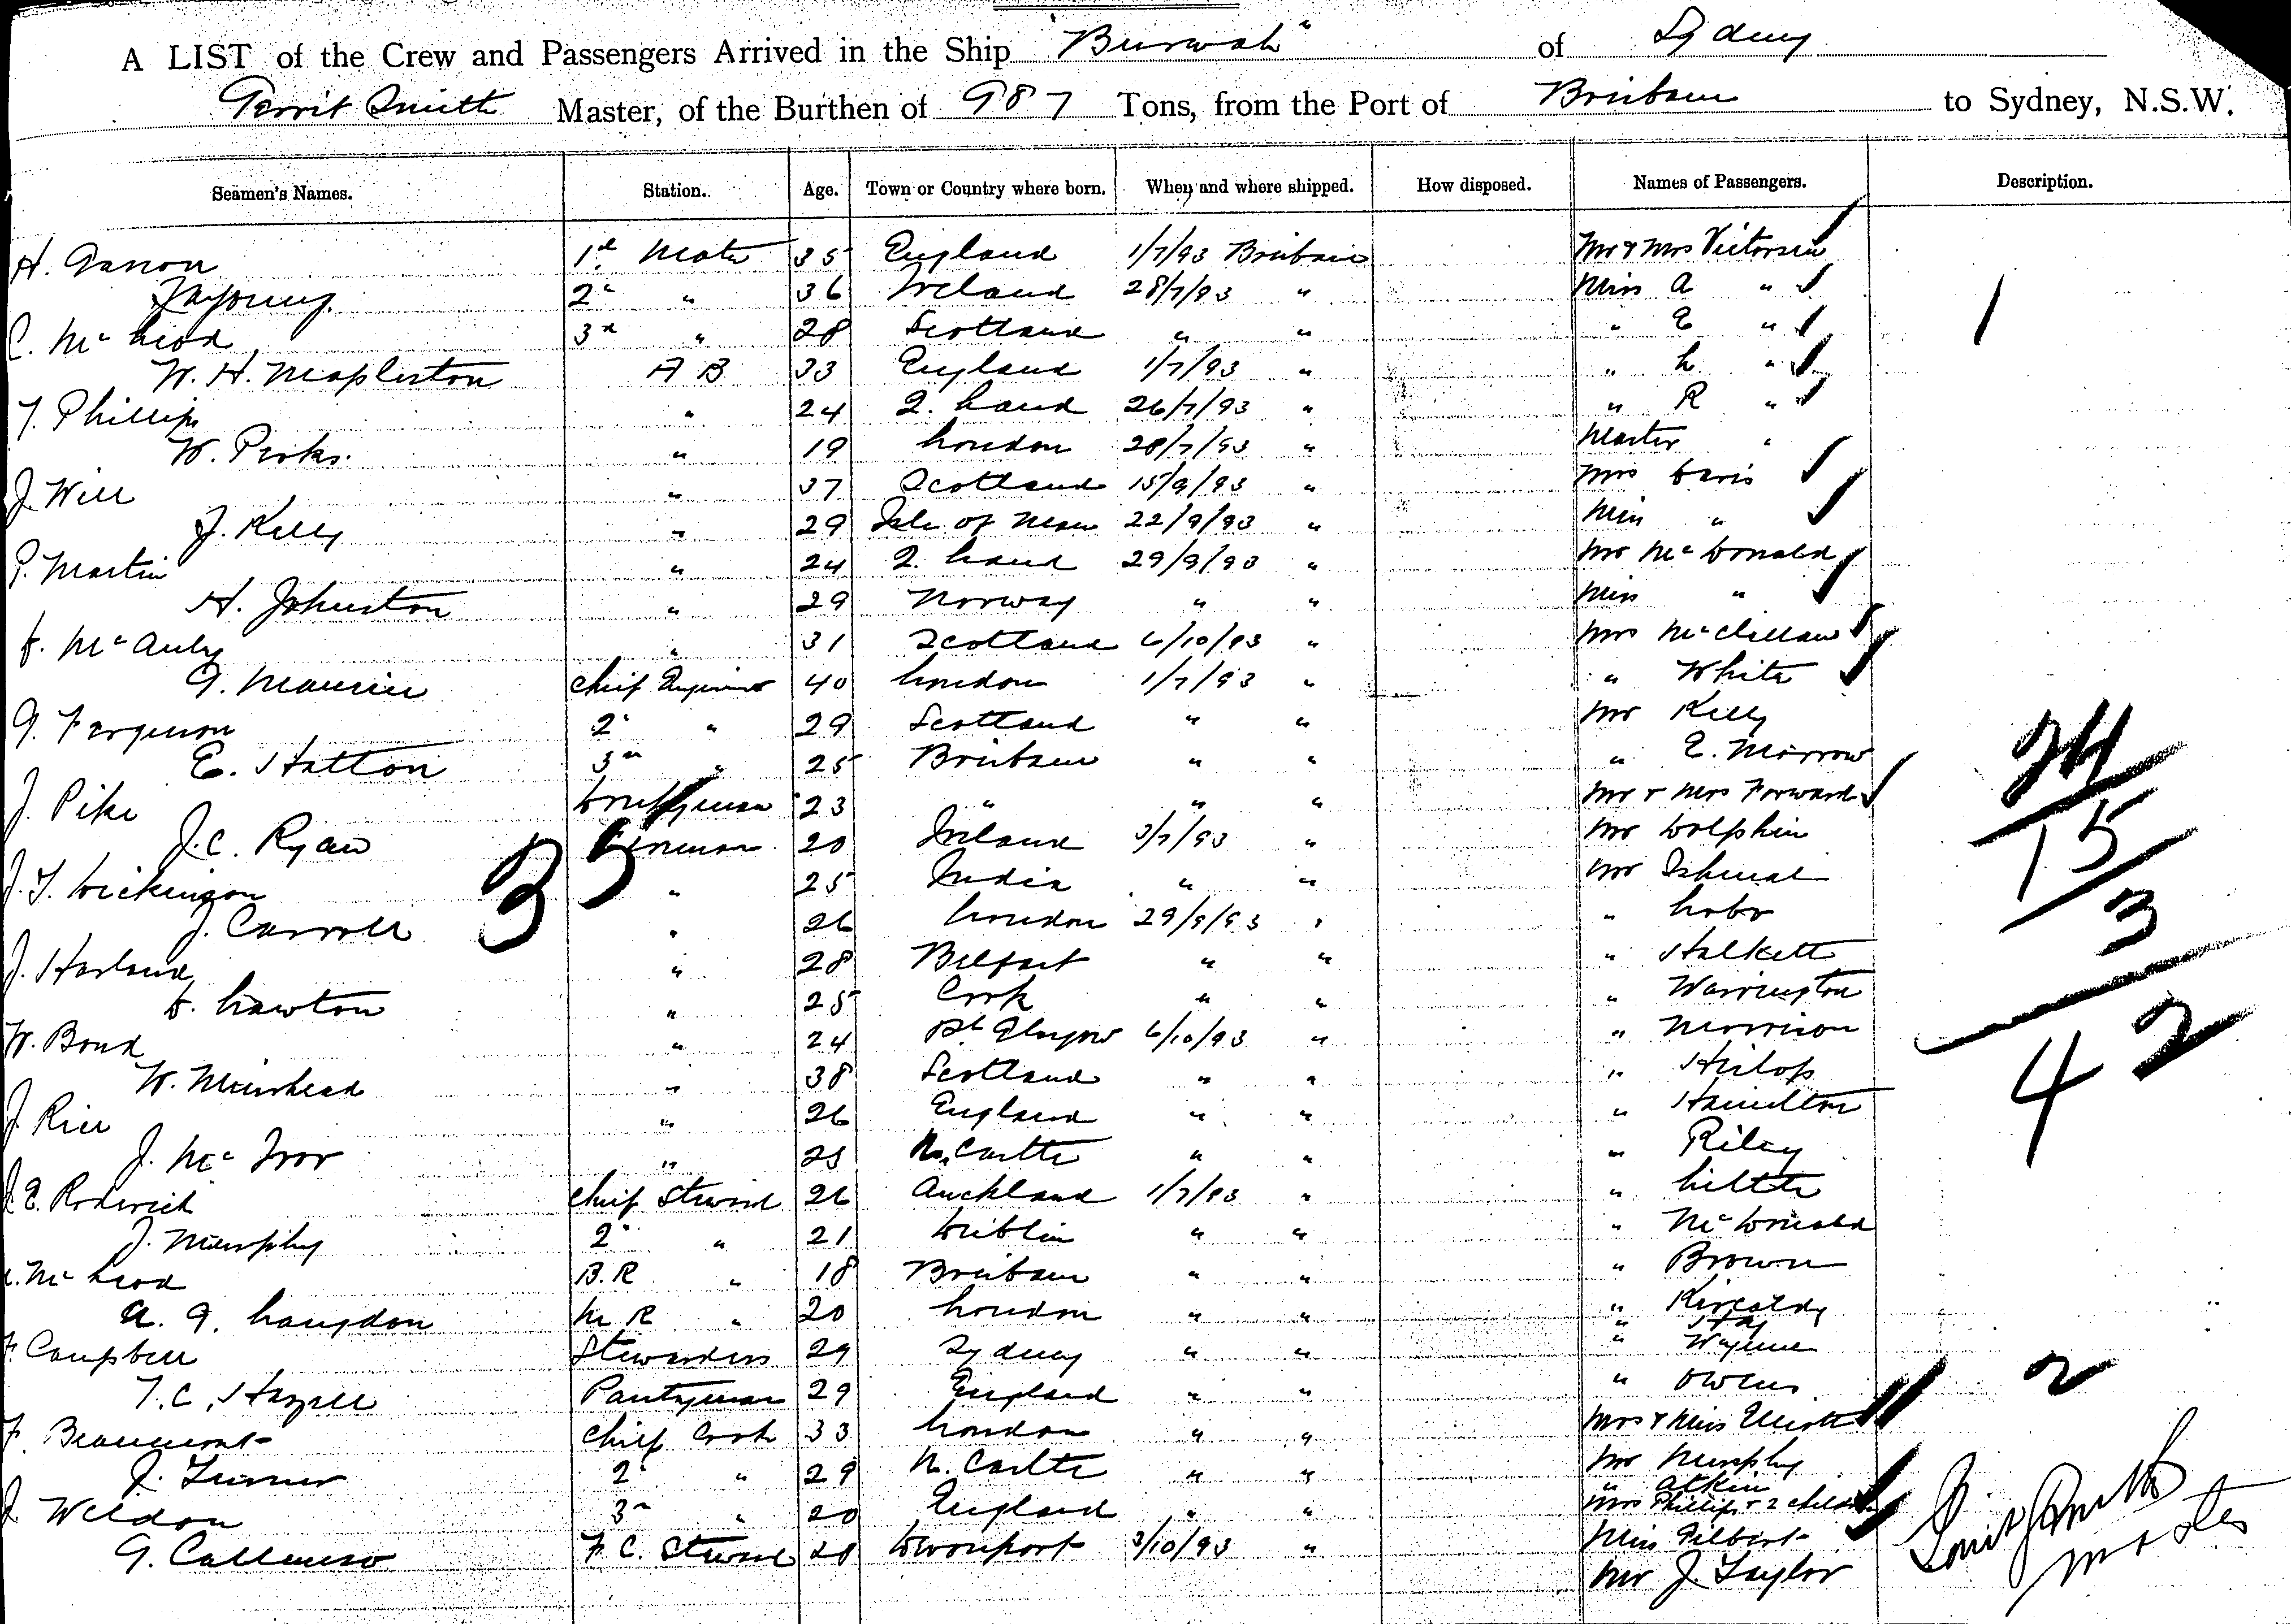 A LIST of the Crew and Passengers Arrived in the Ship "Burwah" of Sydney
Gerrit Smith Master, of the Burthen of 987 Tons, from the Port of Brisbane to Sydney, N.S.W.
Seamen's Names. Station. Age. Town or Country where born. When and where shipped. How disposed. Names of Passengers. Description.
H. 1st Mate 35 England 1/7/93 Brisbane Mr & Mrs Victorsen
2d " 36 Ireland 28/7/93 " Miss A " 1
C. McLeod 3d " 28 Scotland " " " E "
W. H. Mapleston A B 33 England 1/7/93 " " L "
T. Phillips " 24 Q. Land 26/7/93 " " R "
W. Perks. " 19 London 28/7/93 " Master "
J. Will " 37 Scotland 15/9/93 " Mrs Davis
J. Kelly " 29 Isle of Man 22/9/93 " Miss "
P. Martin " 24 Q. Land 29/9/93 " Mr McDonald
H. Johnston " 29 Norway " " Miss "
D. McAuly " 31 Scotland 6/10/93 " Mrs McClellan
G. Maurice Chief Engineer 40 London 1/7/93 " " White
G. Ferguson 2d " 29 Scotland " " Mr Kelly
E. Hatton 3rd " 25 Brisbane " " " E. Morrow
J. Pike Donkeyman 23 " " " Mr & Mrs Forward
J. C. Ryan Fireman 20 Ireland 3/7/93 " Mr Dolphin
J. T. Dickinson " 25 India " " Mr Ishmal
J. Carroll " 26 London 29/9/93 " " Lobo
J. Harland " 28 Belfast " " " Halkett
D. Lawton " 25 Cork " " " Warrington
W. Bond " 24 Pt Glasgow 6/10/93 " " Morrison
W. Muirhead " 38 Scotland " " " Hislop
J. Rice " 26 England " " " Hamilton
J. McIvor " 25 N. Castle " " " Riley
J. E. Roderick Chief Steward 26 Auckland 1/7/93 " " Little
J. Murphy 2d " 21 Dublin " " " McDonald
McLeod B. R " 18 Brisbane " " " Brown
A. G. Langdon M R " 20 London " " " Kircaldy
" Hay
F. Campbell Stewardess 29 Sydney " " " Wynne
T. C. Hazell Pantryman 29 England " " " Owens
F. Beaumont Chief Cook 33 London " " Mrs & Miss Eliott 2
J. Turner 2d " 29 N. Castle " " Mr Murphy
" Atkin
J. Weldon 3rd " 20 England " " Mrs Phillips & 2 children
G. F. C. Steward 28 Devonport 3/10/93 " Miss Filbert
Mr J. Taylor
35
24
15
3
42
Gerrit Smith
Master